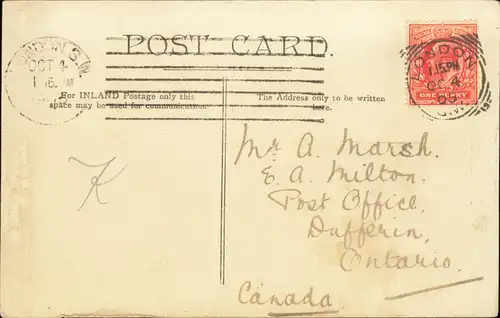 POST CARD.
LONDON. S.W
OCT 4
1.15 PM
LONDON
1.15PM
OC 4
05
S.W.
ONE PENNY
For INLAND Postage only this
space may be used for communication.
The Address only to be written
here.
K
Mr A. Marsh.
E. A. Milton.
Post Office,
Dufferin,
Ontario.
Canada.